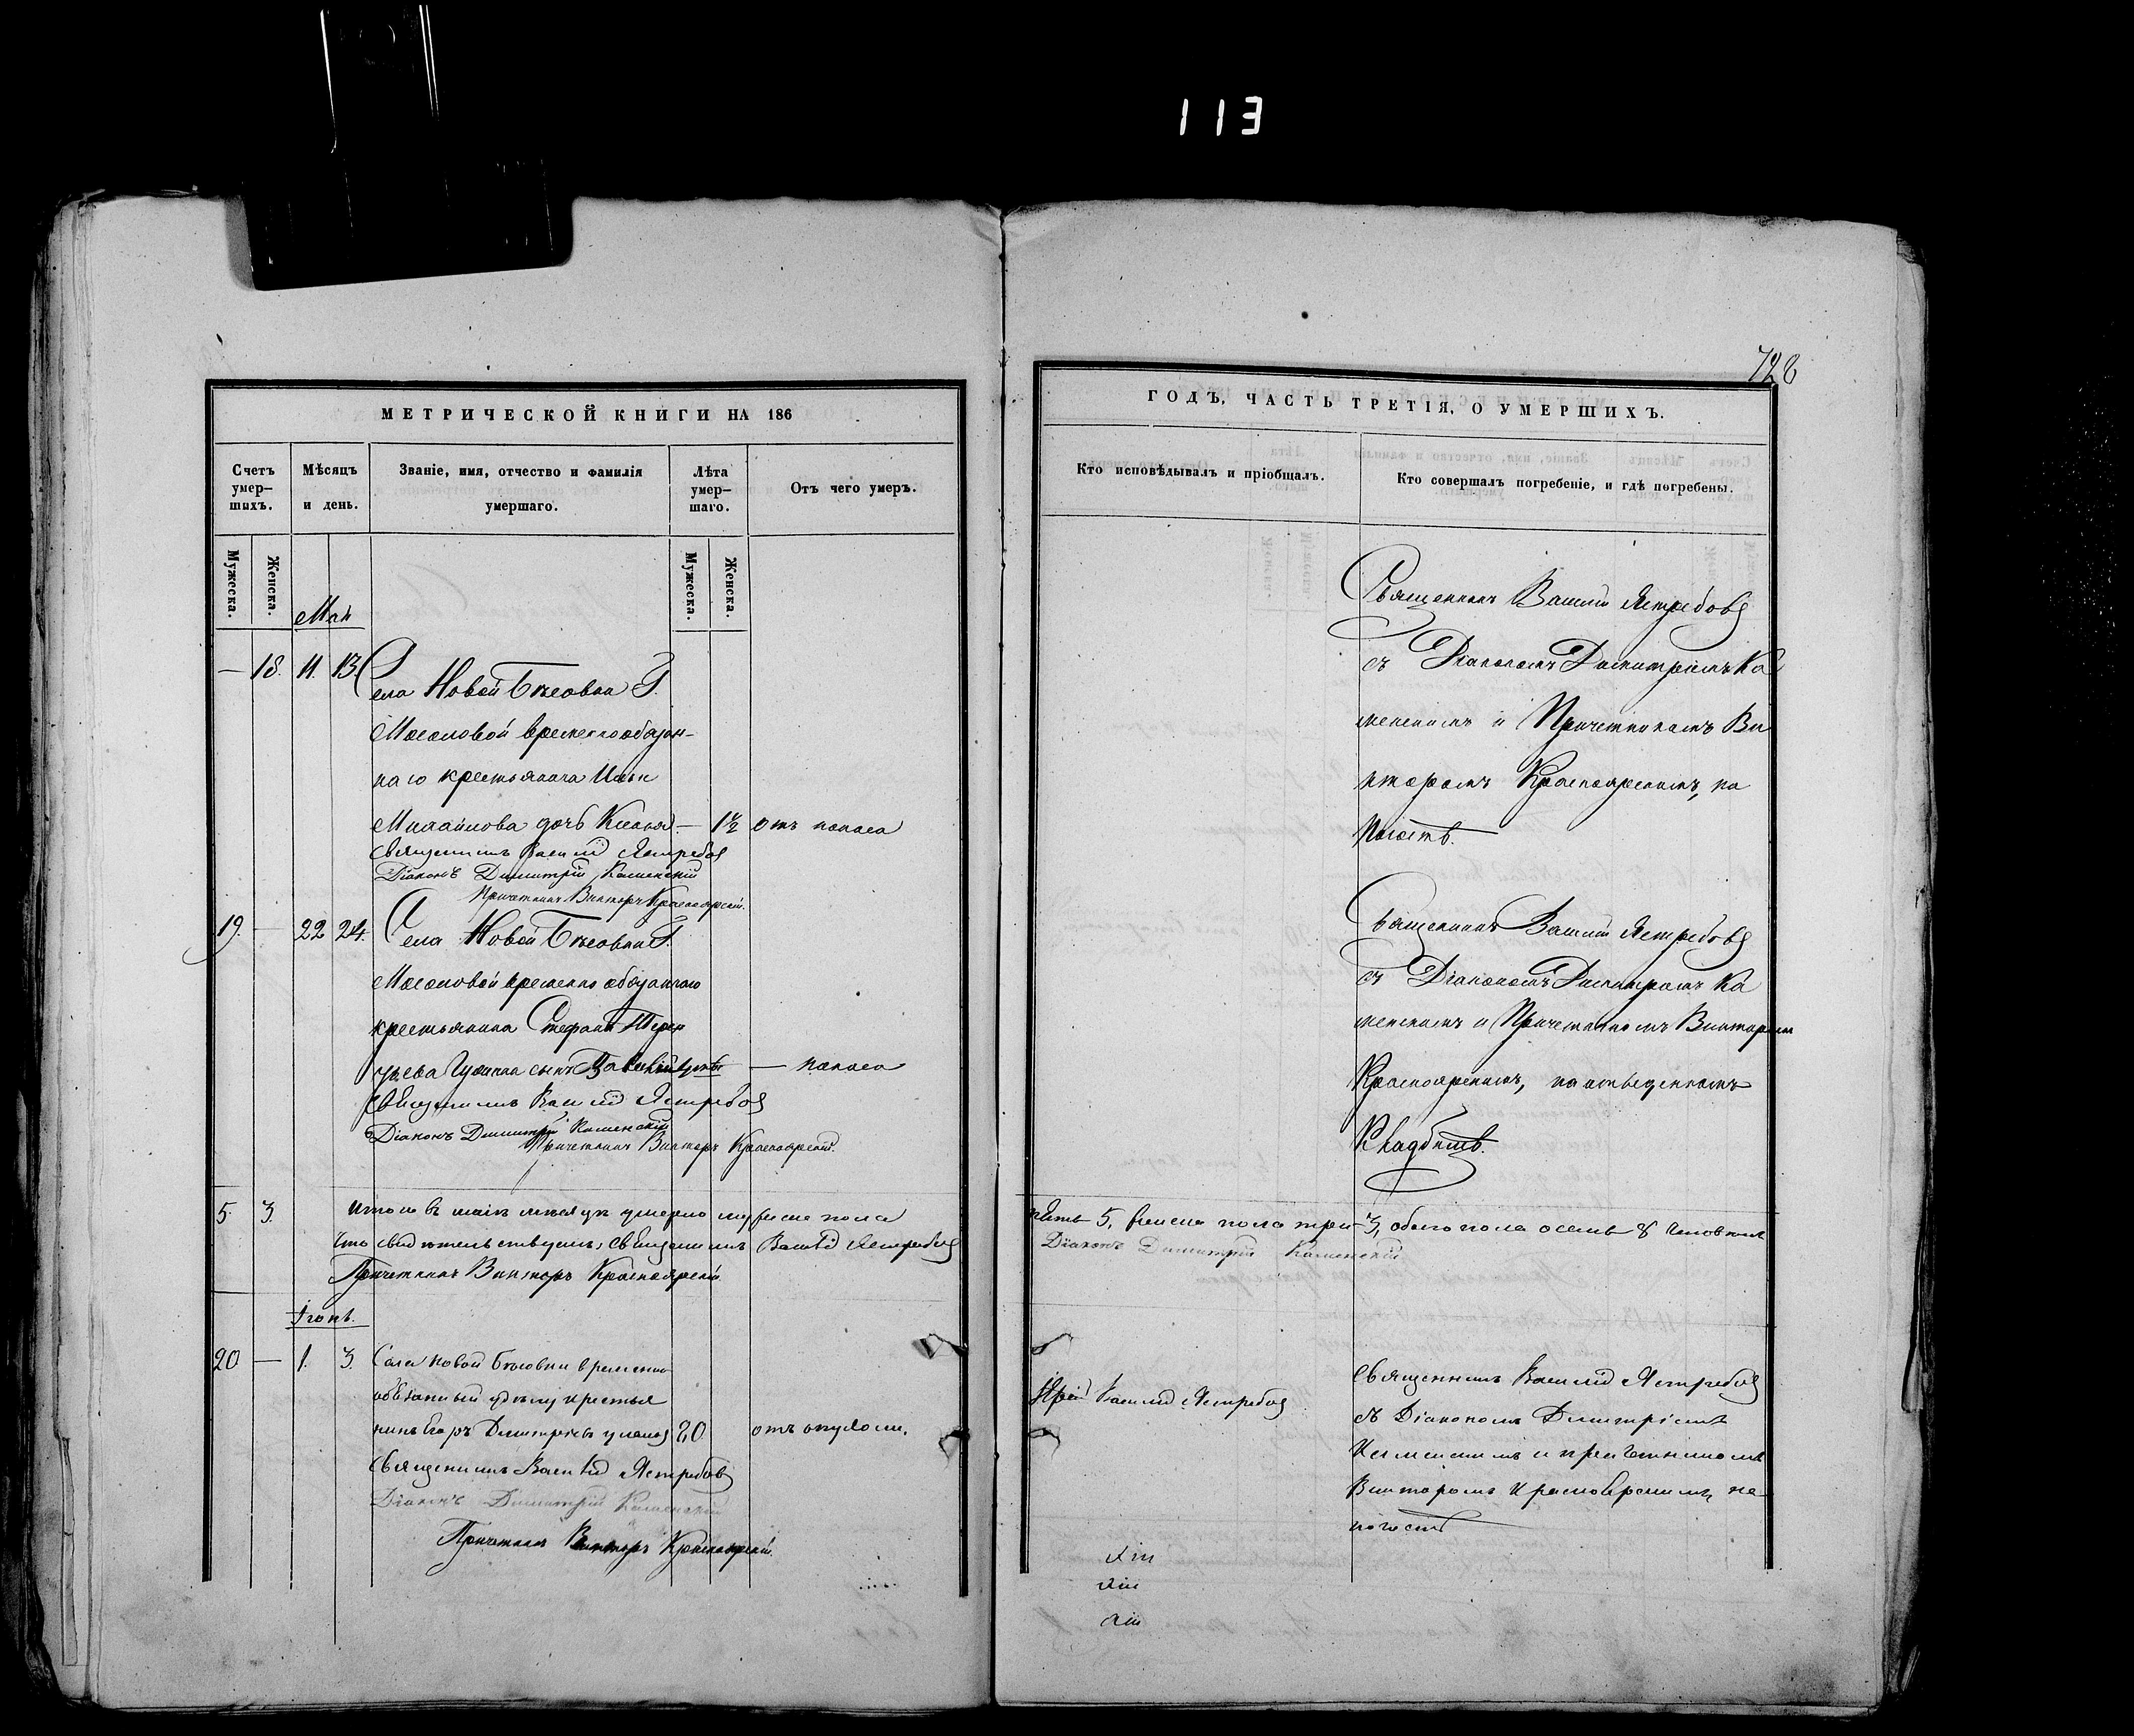 113
728
МЕТРИЧЕСКОЙ КНИГИ НА 186
Счетъ умер-шихъ.
Мѣсяцъ и день.
Званіе, имя, отчество и фамилія умершаго.
Лѣта умер-шаго.
Отъ чего умеръ.
Мужеска.
Женска.
Мужеска.
Женска.
Май
— 18. 11. 13.
Села Новой Бѣсовки Г.
Мосоловой временнообязан-
наго крестьянина Ильи
Михайлова дочь — 1½ отъ поноса
Священникъ Василій Ястребовъ
Діаконъ Димитрій Каменскій
Причетникъ Викторъ Красноярскій.
19. — 22 24.
Села Новой Бѣсовки Г.
Мосоловой временно обязаннаго
крестьянина Стефана
сынъ — поноса
Священникъ Василій Ястребовъ
Діаконъ Димитрій Каменскій
Причетникъ Викторъ Красноярскій.
5 3. Итого въ маіѣ мѣсяцѣ умерло мужеска пола
Что свидѣтельствуемъ, Священникъ Василій Ястребовъ
Причетникъ Викторъ Красноярскій
Іюнь.
20 — 1. 3. Села Новой Бѣсовки временно
обязанный крестья
нинъ Егоръ Димитріевъ 80 отъ опухоли.
Священникъ Василій Ястребовъ
Діаконъ Димитрій Каменскій
Причетникъ Викторъ Красноярскій.
ГОДЪ, ЧАСТЬ ТРЕТІЯ, О УМЕРШИХЪ.
Кто исповѣдывалъ и пріобщалъ.
Кто совершалъ погребеніе, и гдѣ погребены.
Священникъ Василій Ястребовъ
съ Діакономъ Димитріемъ Ка
менскимъ и Причетникомъ Ви
кторомъ Красноярскимъ, на
Погостѣ.
Священникъ Василій Ястребовъ
съ Діакономъ Димитріемъ Ка
менскимъ и Причетникомъ Викторомъ
Красноярскимъ, на отведенномъ
Кладбищѣ.
пять 5, женска пола три 3, обоего пола осемь 8 человѣкъ
Діаконъ Димитрій Каменскій
Іерей Василій Ястребовъ
Священникъ Василій Ястребовъ
съ Діакономъ Димитріемъ
Каменскимъ и причетникомъ
Викторомъ Красноярскимъ, на
погостѣ